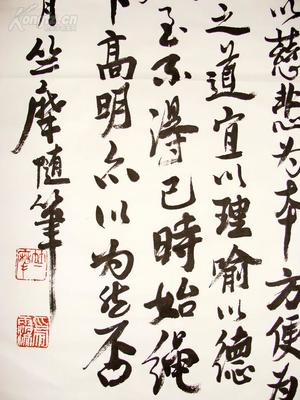 以慈悲为本方便为
之道宜以理喻以德
至不得已時始绳
下高明亦以为然否
月竺摩随笔